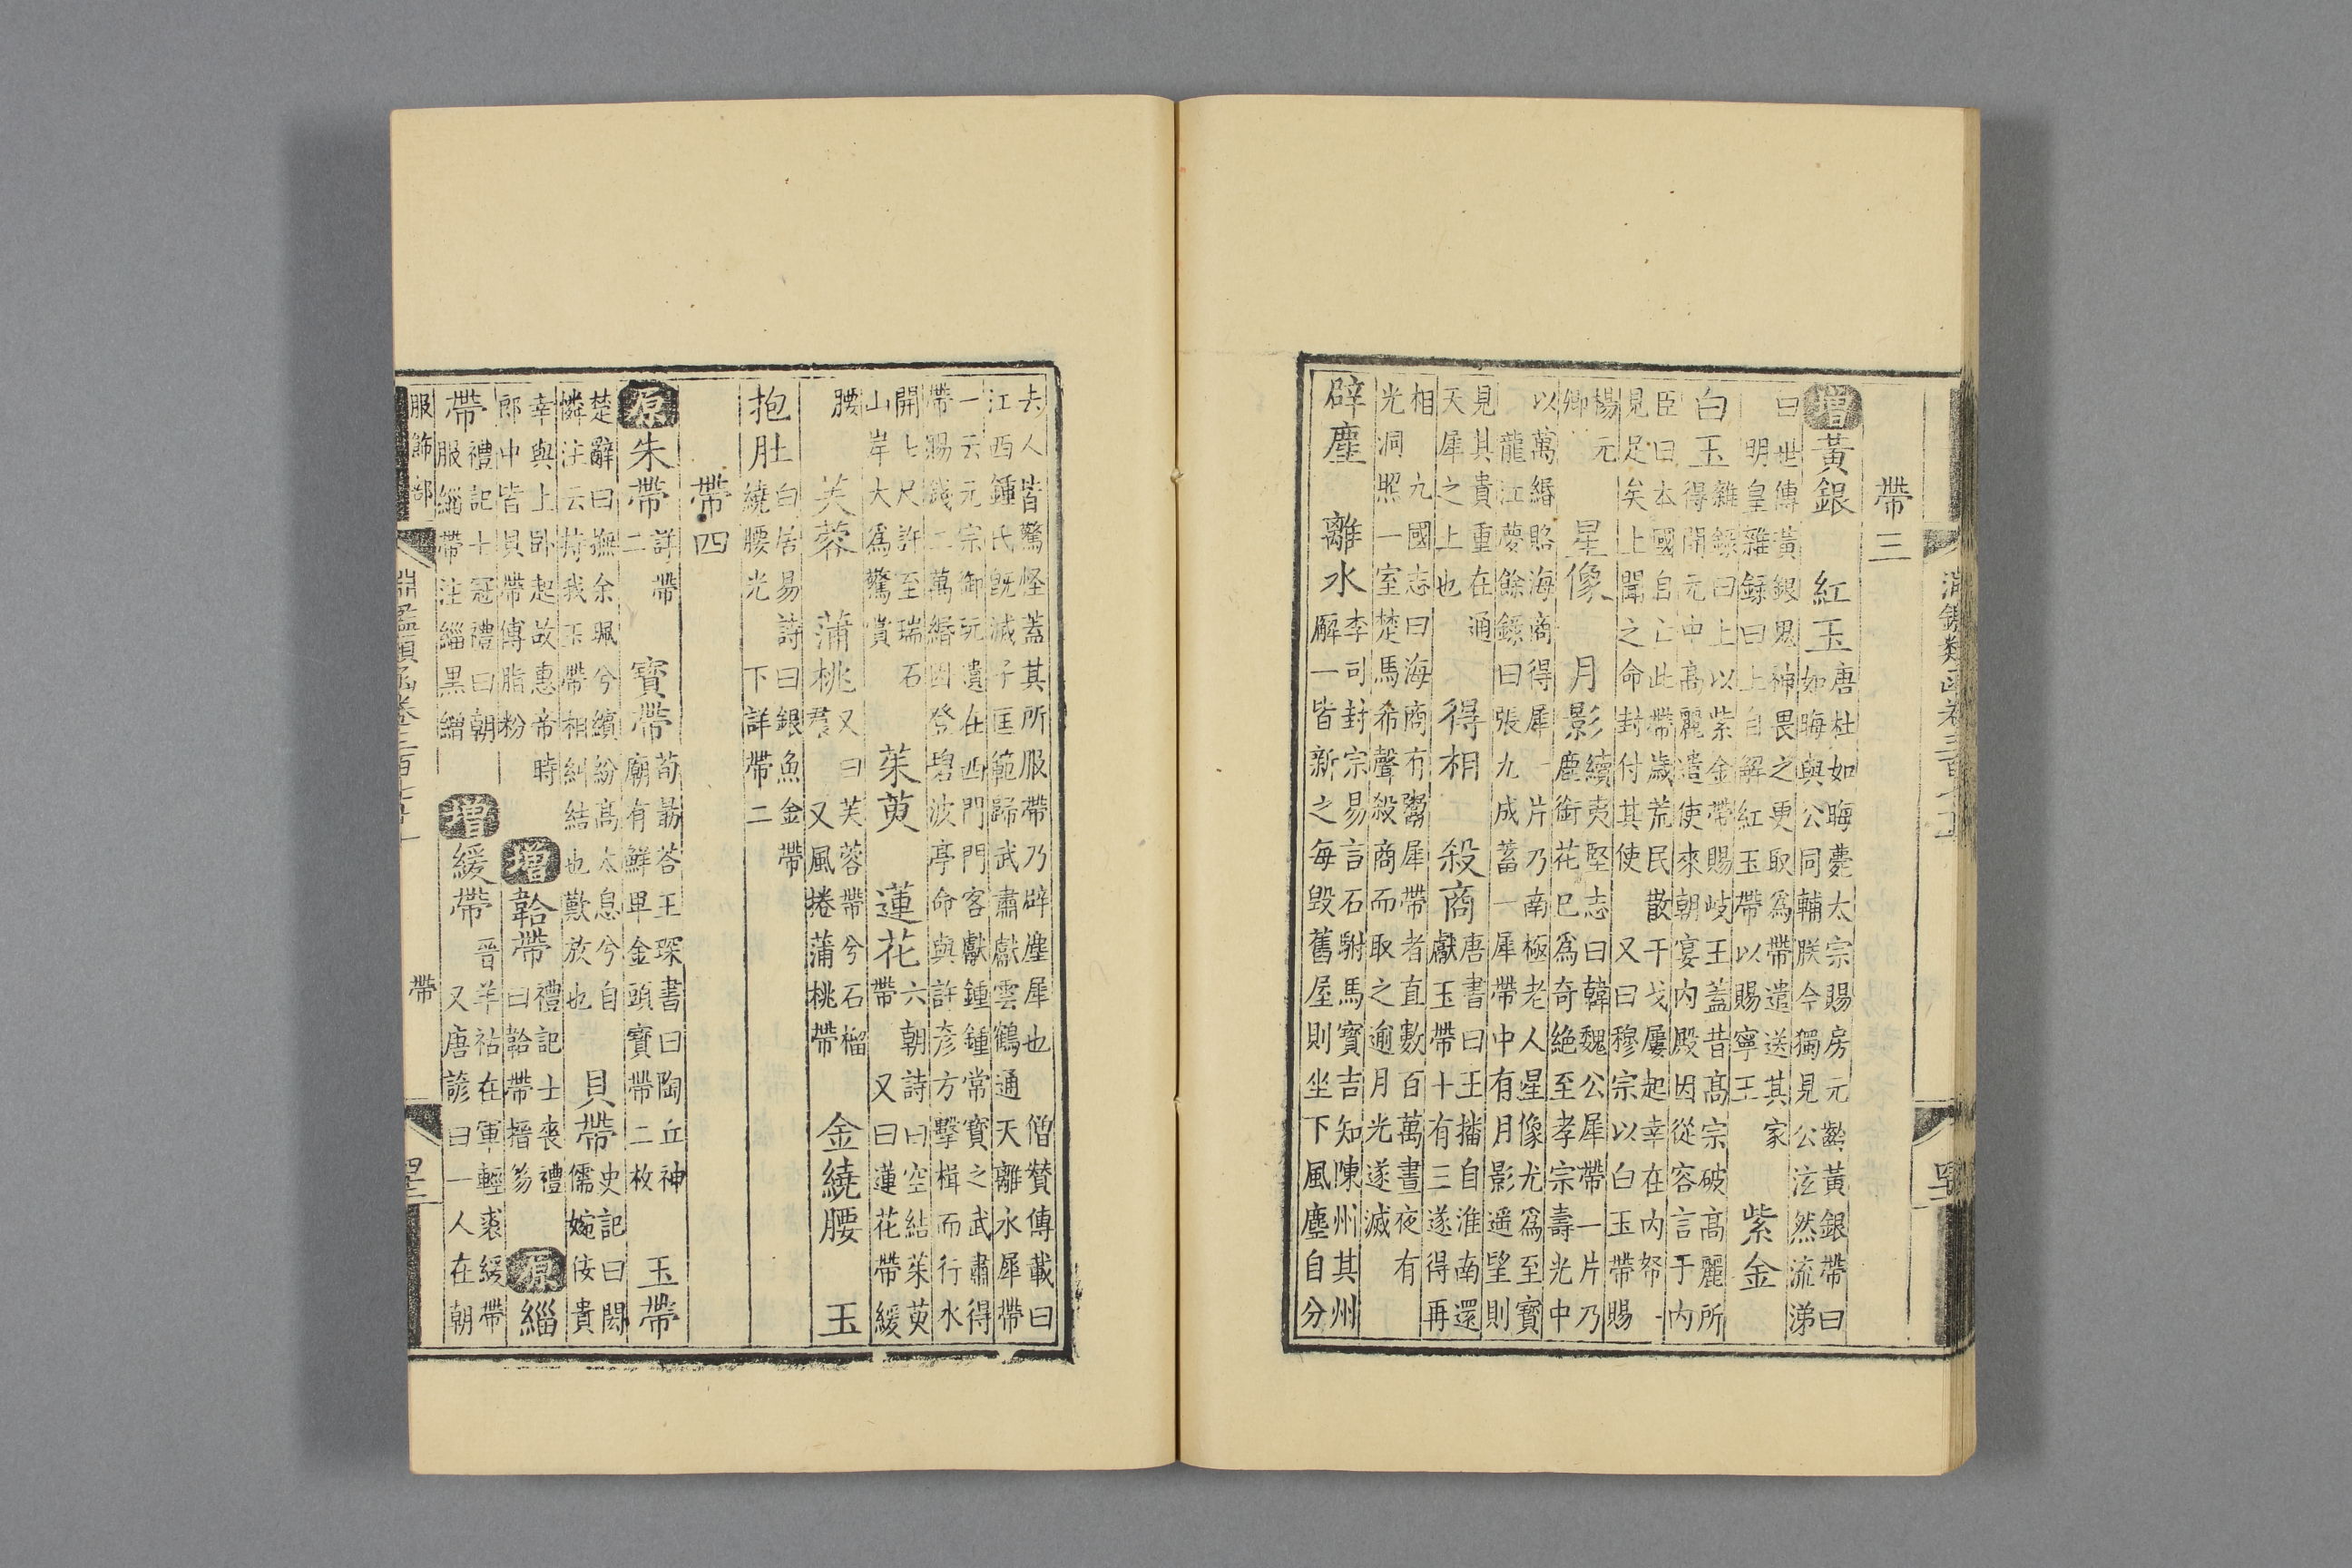 帶三
增黃銀 紅玉
唐杜如晦薨太宗賜房元齡黃銀帶曰
如晦與公同輔朕今獨見公泫然流涕
曰世傳黃銀鬼神畏之更取爲帶遣送其家
明皇雜錄曰上自解紅玉帶以賜寧王
紫金
白玉
雜錄曰上以紫金帶賜岐王蓋昔高宗破高麗所
得開元中高麗遣使來朝宴內殿因從容言于內
臣曰本國自亡此帶歲荒民散干戈屢起幸在內帑
見足矣上聞之命封付其使 又曰穆宗以白玉帶賜
楊元
卿
星像 月影
續夷堅志曰韓魏公犀帶一片乃
塵銜花巳爲奇絶至孝宗壽光中
以萬緡賂海商得犀一片乃南極老人星像尤爲至寶
龍江夢餘錄曰張九成蓄一犀帶中有月影遥望則
見其貴重在通
天犀之上也
得相 殺商
唐書曰王播自淮南還
獻玉帶十有三遂得再
相 九國志曰海商有鬻犀帶者直數百萬晝夜有
光洞照一室楚馬希聲殺商而取之逾月光遂滅
辟塵 離水
李司封宗易言石駙馬寶吉知陳州其州
廨一皆新之每毀舊屋則坐下風塵自分
去人皆驚怪蓋其所服帶乃辟塵犀也 僧贊傳載曰
江西鍾氏旣滅子匡範歸武肅獻雲鶴通天離水犀帶
一云元宗御玩遺在西門門客獻鍾鍾常寶之武肅得
帶賜錢二萬緡因登碧波亭命與許彥方擊楫而行水
開七尺許至瑞石
山岸大爲驚賞
茱萸 蓮花
六朝詩曰空結茱萸
帶 又曰蓮花帶緩
腰
芙蓉 蒲桃
又曰芙蓉帶兮石榴
裙 又風捲蒲桃帶
金繞腰 玉
抱肚
白居易詩曰銀魚金帶
繞腰光 下詳帶二
帶四
原朱帶
詳帶
二
寶帶
荀朂荅王琛書曰陶丘神
廟有鮮卑金頭寶帶二枚
玉帶
楚辭曰撫余珮兮繽紛高太息兮自
憐注云持我玉帶相糾結也歎放也
貝帶
史記曰閎
儒婉佞貴
幸與上卧起故惠帝時
郎中皆貝帶傅脂粉
增鞈帶
禮記士喪禮
曰鞈帶搢笏
原緇
帶
禮記士冠禮曰朝
服緇帶注緇黑繒
增緩帶
晉羊祜在軍輕裘緩帶
又唐諺曰一人在朝
服飾部 帶